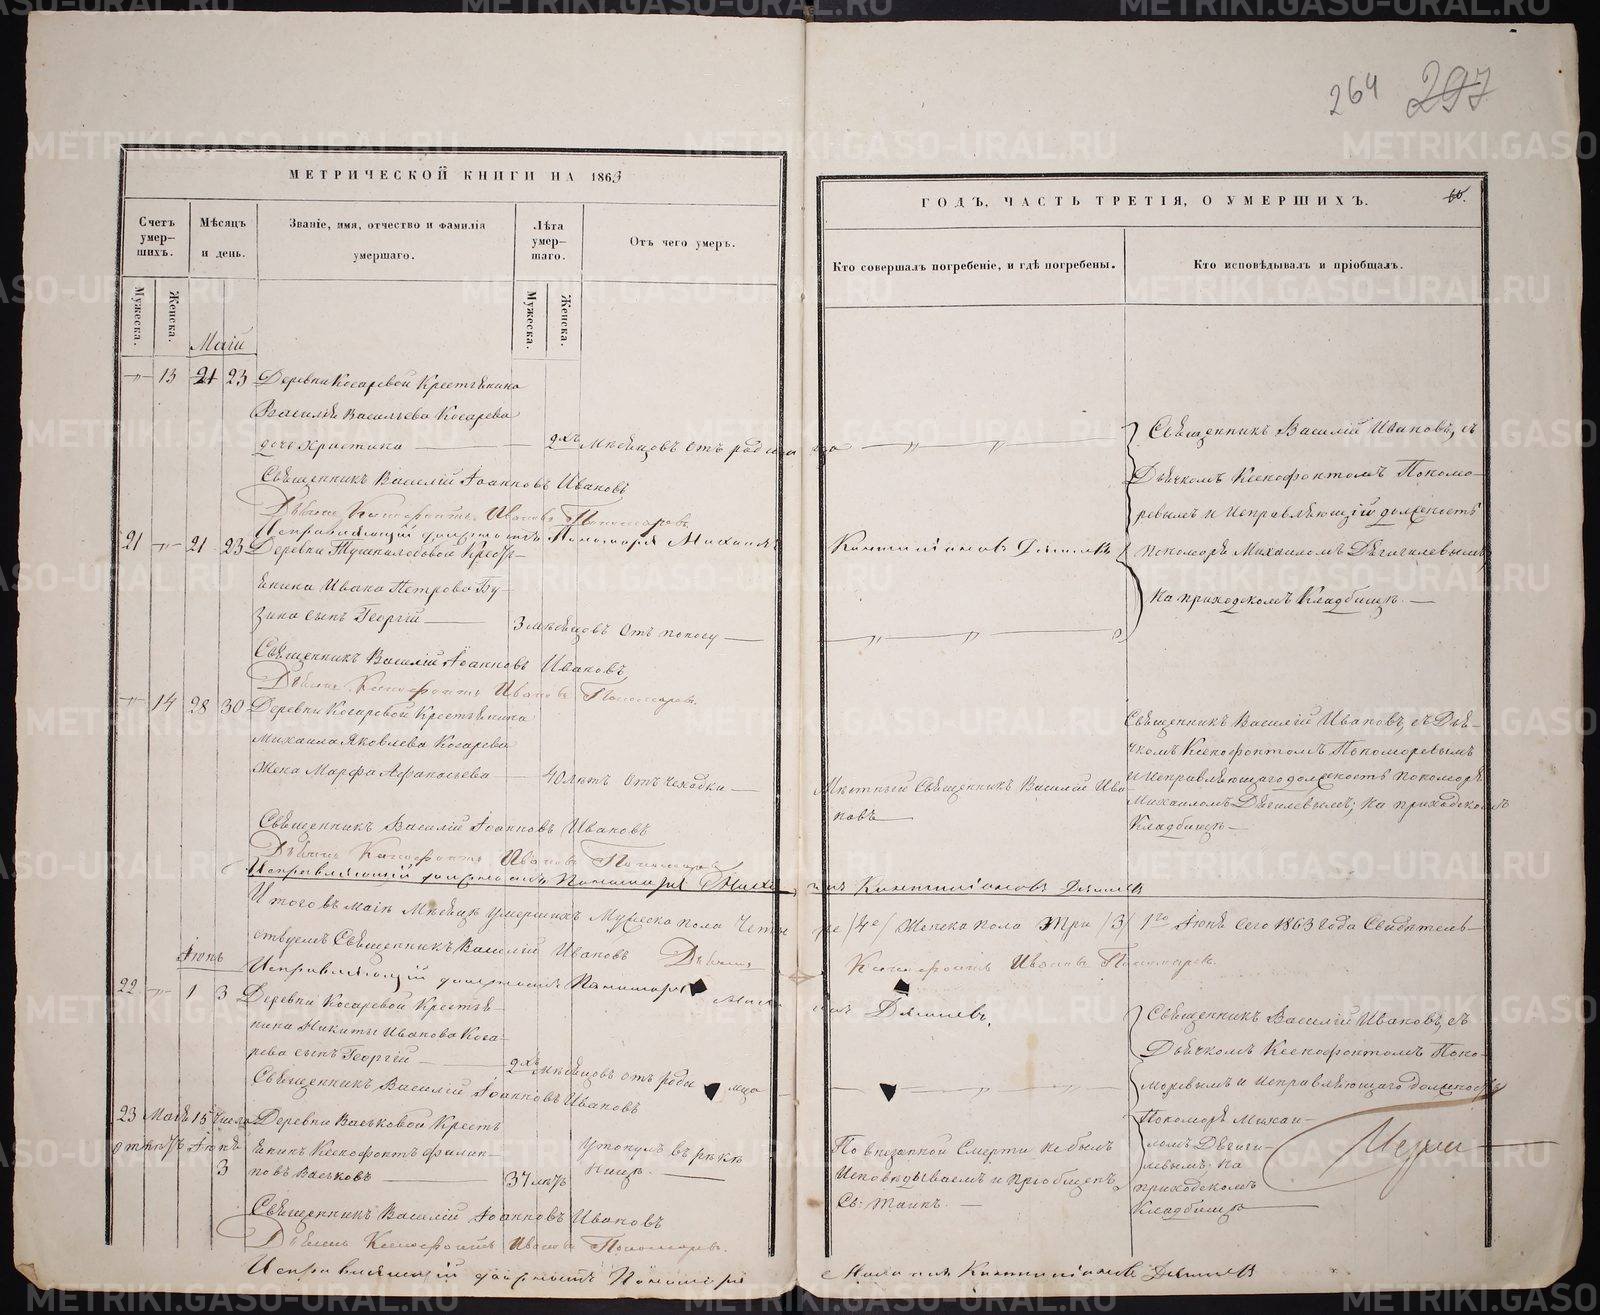 264 297
МЕТРИЧЕСКОЙ КНИГИ НА 1863
ГОДЪ, ЧАСТЬ ТРЕТІЯ, О УМЕРШИХЪ.
Счетъ умер-шихъ.
Мѣсяцъ и день.
Званіе, имя, отчество и фамилія умершаго.
Лѣта умер-шаго.
Отъ чего умеръ.
Кто совершалъ погребеніе, и гдѣ погребены.
Кто исповѣдывалъ и пріобщалъ.
Мужеска.
Женска.
Мужеска.
Женска.
Маій
13 21 23 Деревни Косаревой Крестьянина
Василія Васильева Косарева
дочь Христина
2хъ Мѣсяцовъ Отъ родимца
Священникъ Василій Ивановъ, съ
Дьячкомъ Ксенофонтомъ Пономо-
ревымъ и Исправляющій должность
пономоря Михаиломъ Дягилевымъ
На приходскомъ Кладбищѣ.
Священникъ Василій Іоанновъ Ивановъ
Дьячекъ Ксенофонтъ Ивановъ Пономаревъ
Исправляющій должность Пономаря Михаилъ
21 21 23 Деревни Крестья-
янина Ивана Петрова Бу-
зина сынъ Георгій
3 мѣсяцовъ Отъ поносу
Священникъ Василій Іоанновъ Ивановъ
Дьячекъ Ксенофонтъ Ивановъ Пономаревъ
14 28 30 Деревни Косаревой Крестьянина
Михаила Яковлева Косарева
Жена Марфа Афанасьева
40 лѣтъ Отъ чахотки
Мѣстный Священникъ Василій Ива-
новъ
Священникъ Василій Ивановъ, съ Дья-
чкомъ Ксенофонтомъ Пономоревымъ
и Исправляющаго должность пономоря
Михаиломъ Дягилевымъ; На приходскомъ
Кладбищѣ
Священникъ Василій Іоанновъ Ивановъ
Дьячекъ Ксенофонтъ Ивановъ Пономаревъ
Исправляющій должность Пономаря
Итого въ маіѣ Мѣсяцѣ умершихъ Мужеска пола Четы-
ре /4е/ Женска пола Три /3/ 1го Іюня сего 1863 года Свидѣтель-
ствуемъ Священникъ Василій Ивановъ Дьячекъ
Ксенофонтъ Ивановъ Пономаревъ.
Исправляющій должность Пономаря
Іюнь
22 1 3 Деревни Косаревой Крестья-
нина Никиты Иванова Коса-
рева сынъ Георгій
2хъ мѣсяцовъ отъ родимца
Священникъ Василій Ивановъ, съ
Дьячкомъ Ксенофонтомъ Поно-
моревымъ и исправляющаго должность
Пономоря Михаи-
ломъ Дягилевымъ; на
приходскомъ
Кладбищѣ
Священникъ Василій Іоанновъ Ивановъ
23 Маія 15 числа Деревни Васьковой Кресть-
янинъ Ксенофонтъ Филип-
повъ Васьковъ
Іюня 3
37 лѣтъ
Утонулъ въ рѣкѣ
Ницѣ.
По внезапной Смерти не былъ
Исповѣдываемъ и пріобщенъ
Св: Таинъ.
Священникъ Василій Іоанновъ Ивановъ
Дьячекъ Ксенофонтъ Ивановъ Пономаревъ.
Исправляющій должность Пономаря
METRIKI.GASO-URAL.RU